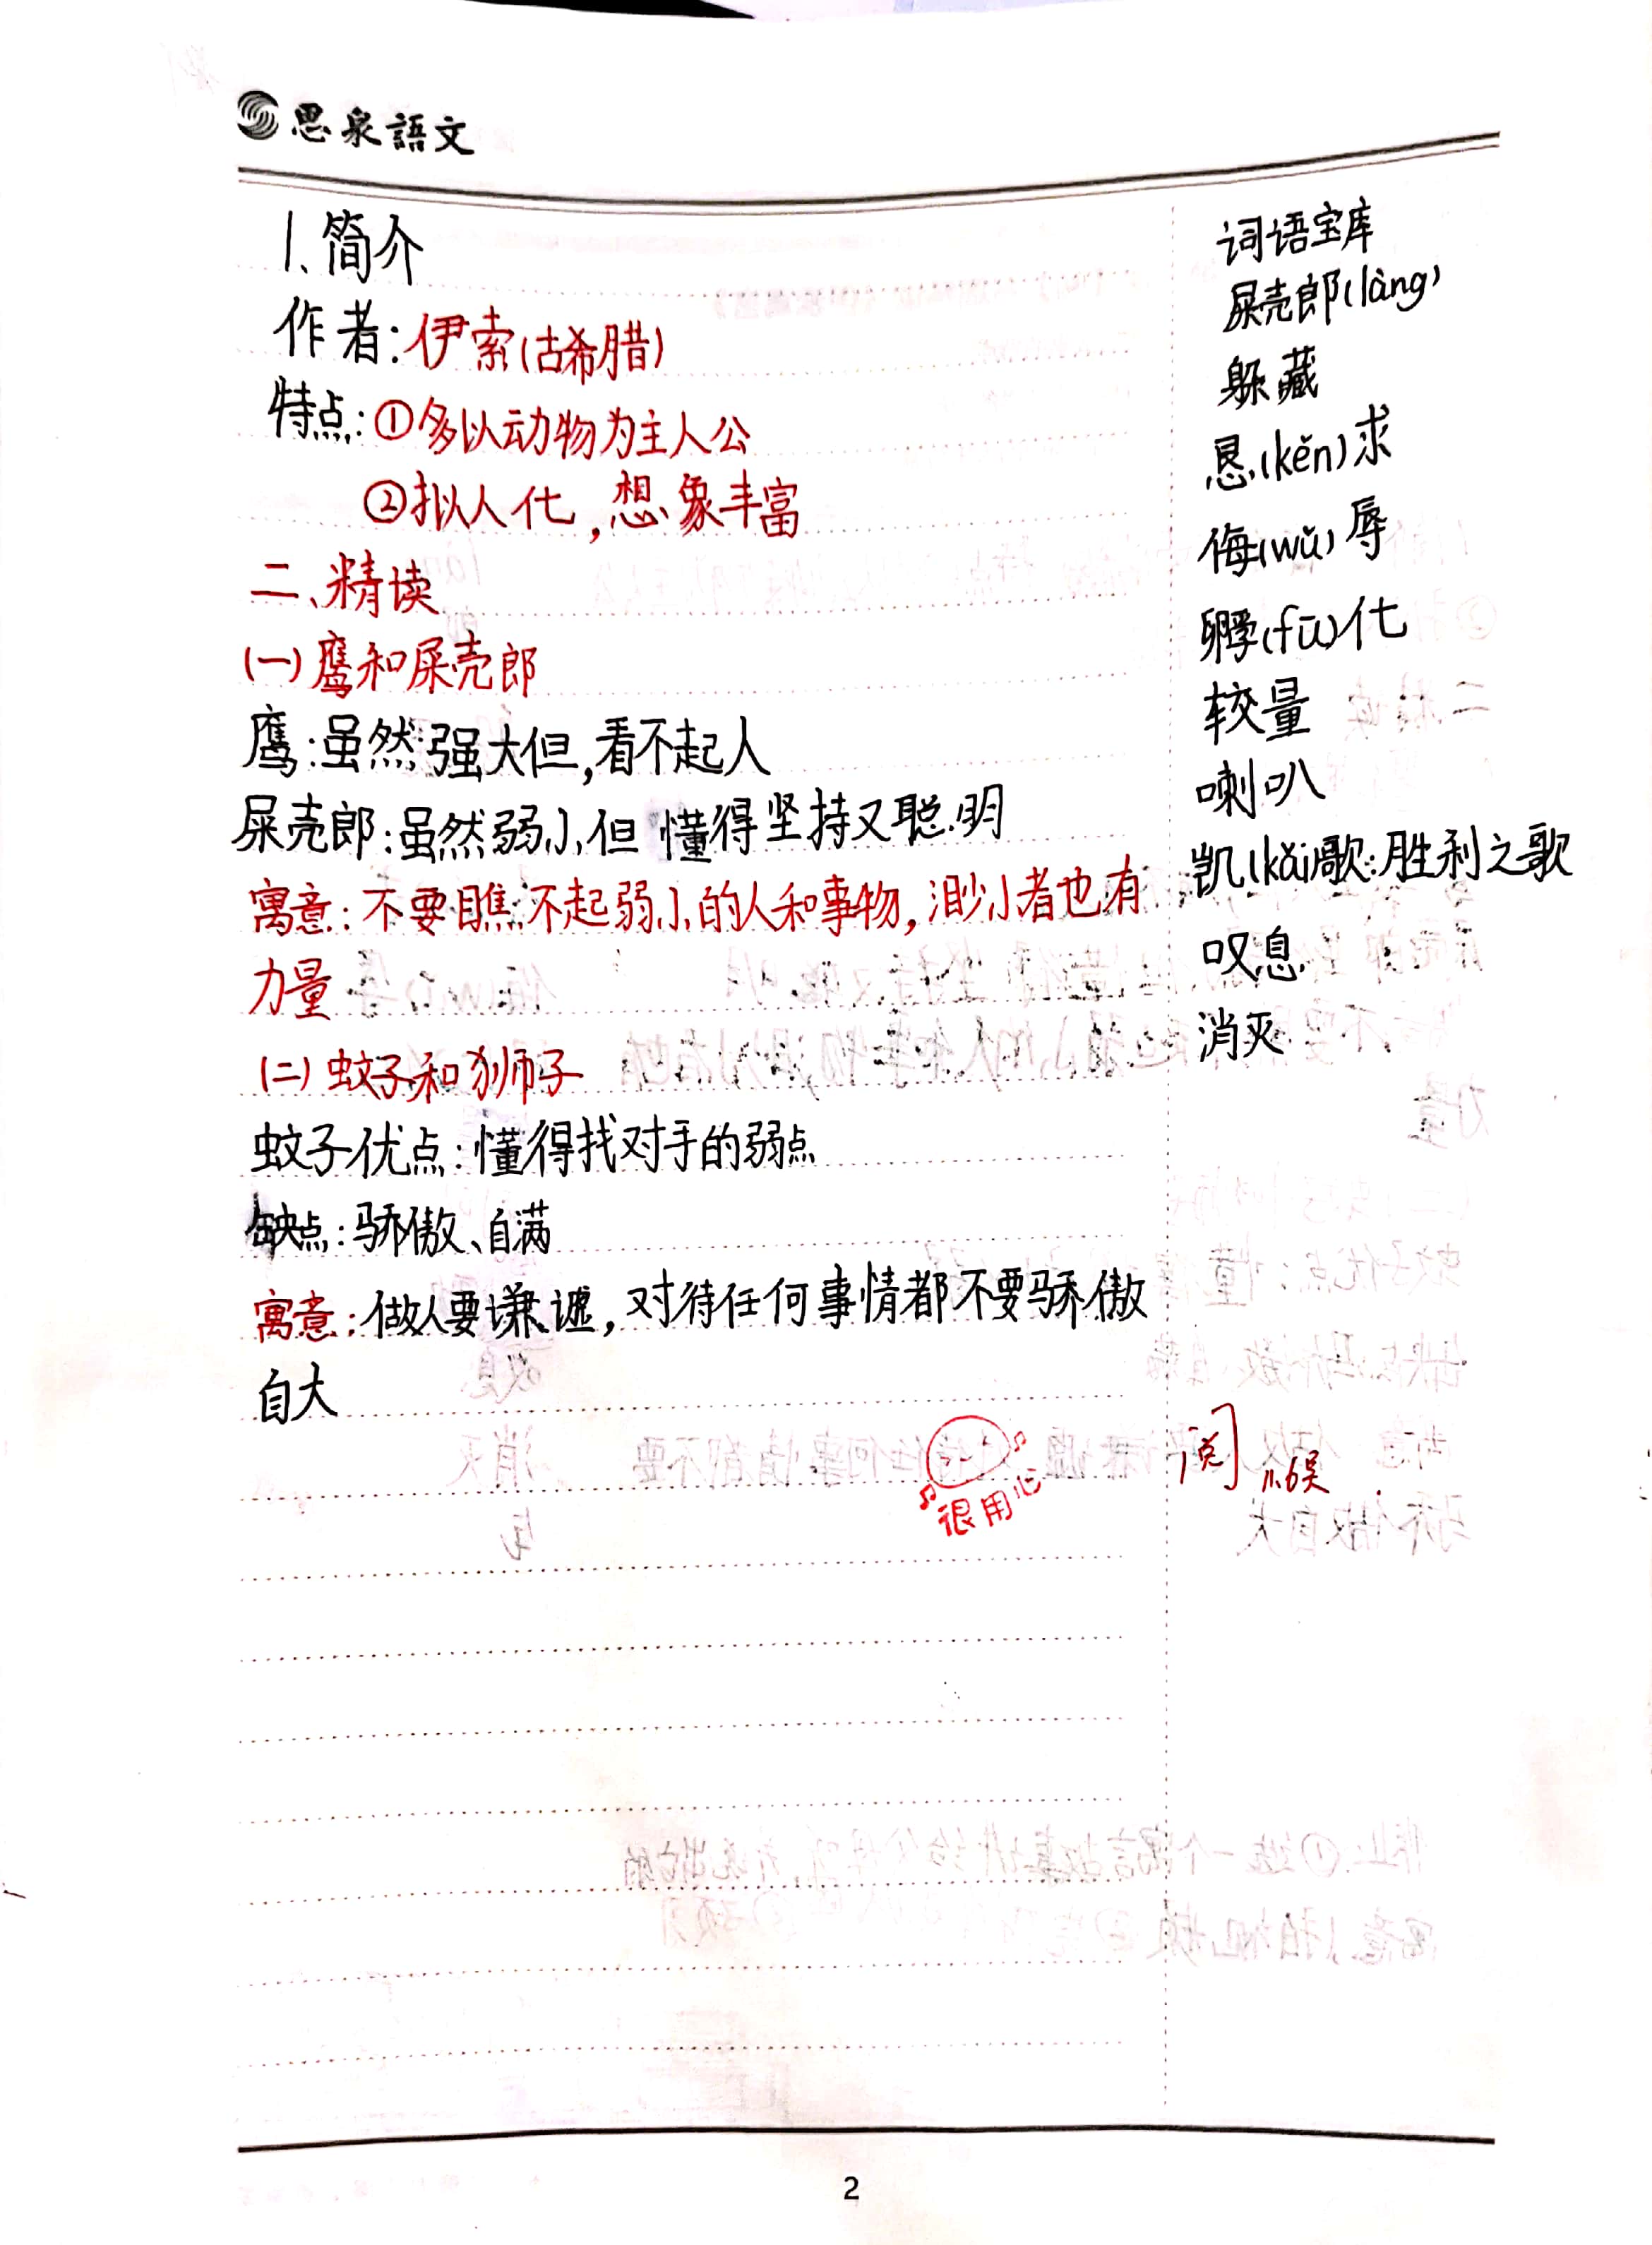 思泉語文
1、简介
作者:伊索(古希腊)
特点:①多以动物为主人公
②拟人化,想象丰富
二、精读
(一)鹰和屎壳郎
鹰:虽然强大但,看不起人
屎壳郎:虽然弱小但懂得坚持又聪明
寓意:不要瞧不起弱小的人和事物,渺小者也有
力量
(二)蚊子和狮子
蚊子优点:懂得找对手的弱点
缺点:骄傲、自满
寓意:做人要谦虚,对待任何事情都不要骄傲
自大
很用心
词语宝库
屎壳郎(làng)
躲藏
恳(kěn)求
侮(wǔ)辱
孵(fū)化
较量
喇叭
凯(kǎi)歌:胜利之歌
叹息
消灭
阅 11.6吴
2